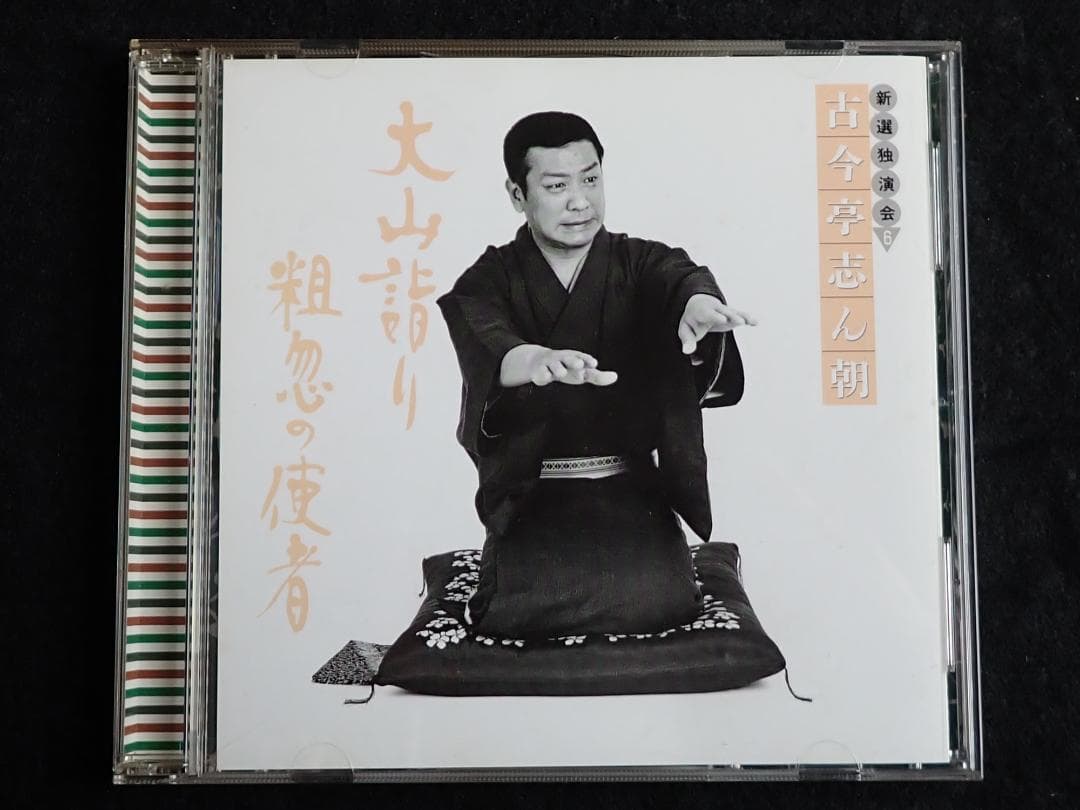 新選独演会6
古今亭志ん朝
大山詣り
粗忽の使者